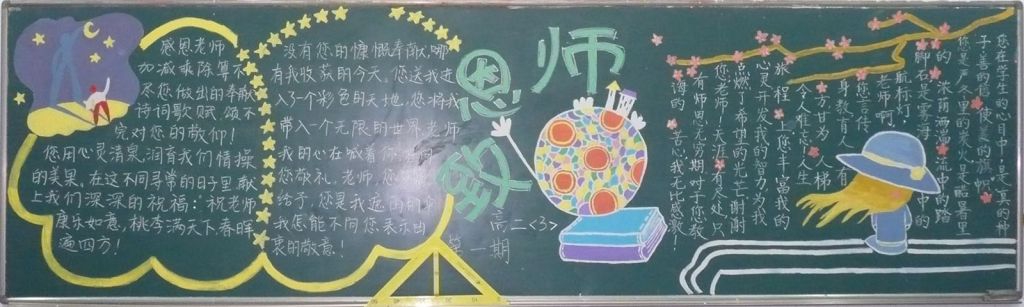 感恩老师
加减乘除算不
尽您做出的奉献
诗词歌赋颂不
完对您的敬仰！
您用心灵清泉润育我们情操
的美果，在这不同寻常的日子里献
上我们深深的祝福：“祝老师
康乐如意，桃李满天下春晖
遍四方！
没有您的慷慨奉献，哪
有我收获的今天，您送我进
入了一个彩色的天地，您将我
带入一个无限的世界，老师
我的心在喊着你
您敬礼。老师，您
给予，您是我进
我怎能不向您表示出
衷的敬意！
致恩师
高二<3>
第一期
您在学生的心目中，是“真的种
子，善的信使，美的旗帜”
您是严冬里的炭火，是酷暑里
的浓荫洒湍流中的踏
脚石，是雾海中的
航标灯
老师啊，
您言传
身教育人有
方甘为人梯
令人难忘人生
旅程上您丰富我的
心灵开发我的智力为我
点燃了希望的光芒谢谢
您，老师！天涯海角有尽处，只
有师恩无穷期对于您教
诲的苦心我无比感激！